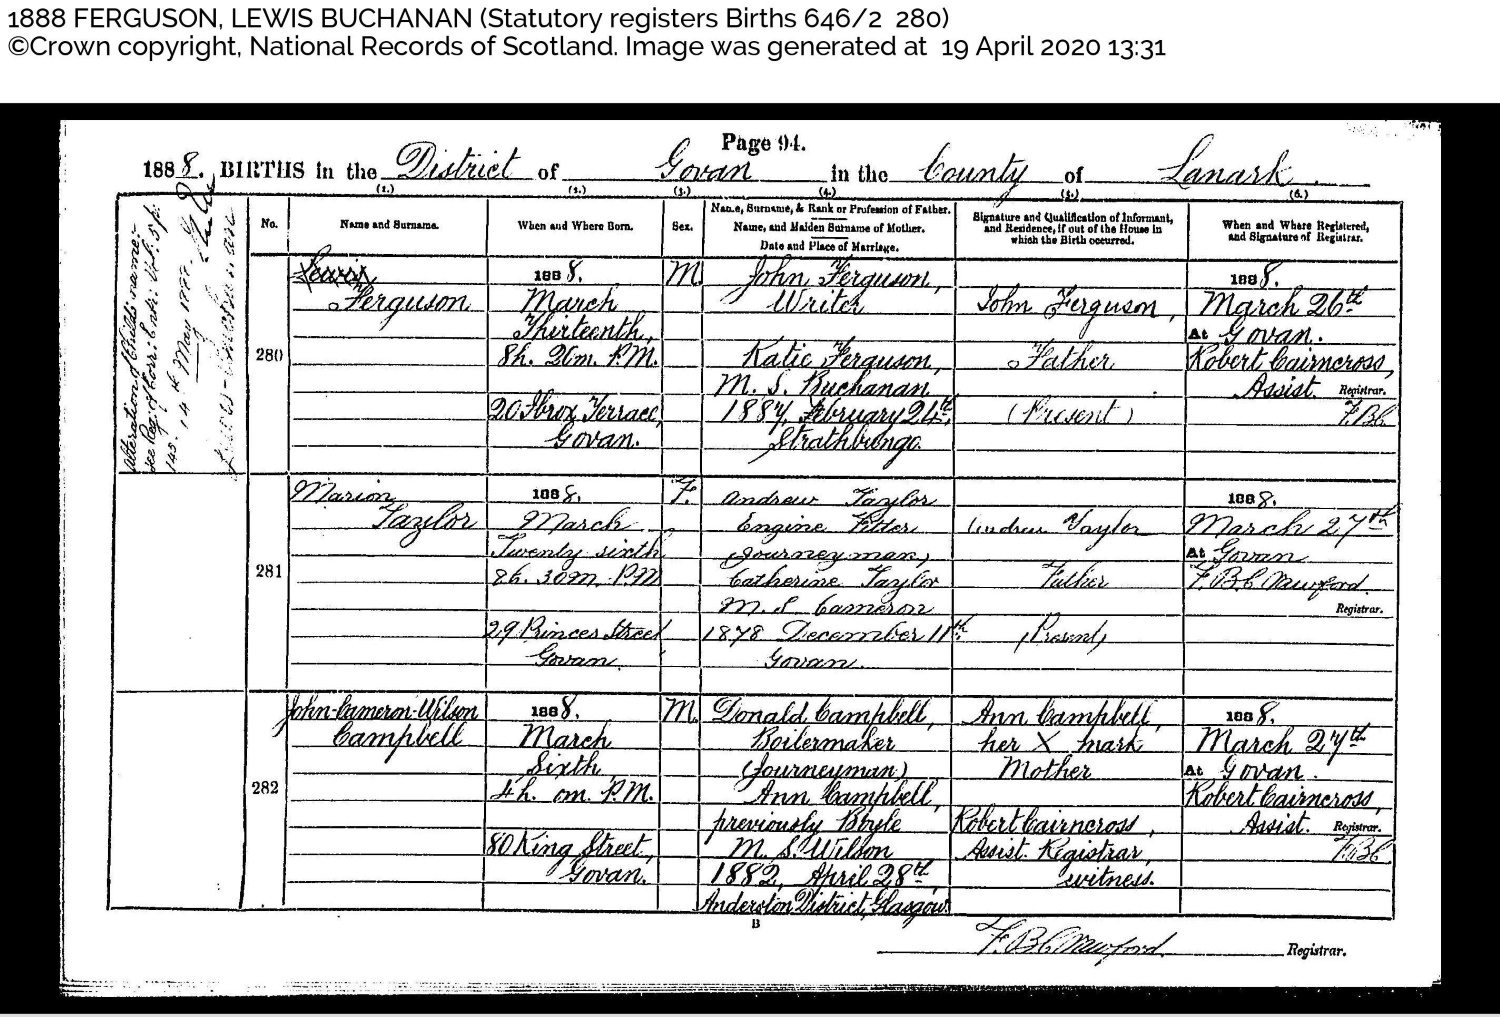 1888 FERGUSON, LEWIS BUCHANAN (Statutory registers Births 646/2 280)
©Crown copyright, National Records of Scotland. Image was generated at 19 April 2020 13:31
Page 94.
1888. BIRTHS in the District of Govan in the County of Lanark.
(1.) (2.) (3.) (4.) (5.) (6.)
No.
Name and Surname.
When and Where Born.
Sex.
Name, Surname, & Rank or Profession of Father.
Name, and Maiden Surname of Mother.
Date and Place of Marriage.
Signature and Qualification of Informant,
and Residence, if out of the House in
which the Birth occurred.
When and Where Registered,
and Signature of Registrar.
Alteration of Child's name:-
See Reg. of Corr. Entr. Vol. 5 p.
145. 14th May
280
Lewis
Ferguson
1888.
March
Thirteenth,
8h. 26m. P.M.
20 Ibrox Terrace,
Govan.
M.
John Ferguson,
Writer
Katie Ferguson,
M.S. Buchanan.
1887, February 24th,
Strathbungo.
John Ferguson,
Father
(Present)
1888.
March 26th
At Govan.
Robert Cairncross,
Assist. Registrar.
F.B.C.
281
Marion
Taylor
1888.
March
Twenty sixth
8h. 30m. P.M.
29 Princes Street
Govan.
F.
Andrew Taylor
Engine Fitter
(Journeyman)
Catherine Taylor
M.S. Cameron
1878 December 11th
Govan.
Andrew Taylor
Father
(Present)
1888.
March 27th
At Govan
F.B. Crawford
Registrar.
282
John-Cameron-Wilson
Campbell
1888.
March
Sixth
4h. 0m. P.M.
80 King Street,
Govan.
M.
Donald Campbell,
Boilermaker
(Journeyman)
Ann Campbell,
previously Boyle
M.S. Wilson
1882, April 28th,
Anderston District, Glasgow.
Ann Campbell,
her X mark
Mother
Robert Cairncross,
Assist. Registrar,
witness.
1888.
March 27th
At Govan.
Robert Cairncross,
Assist. Registrar.
F.B.C.
B
F.B. Crawford Registrar.